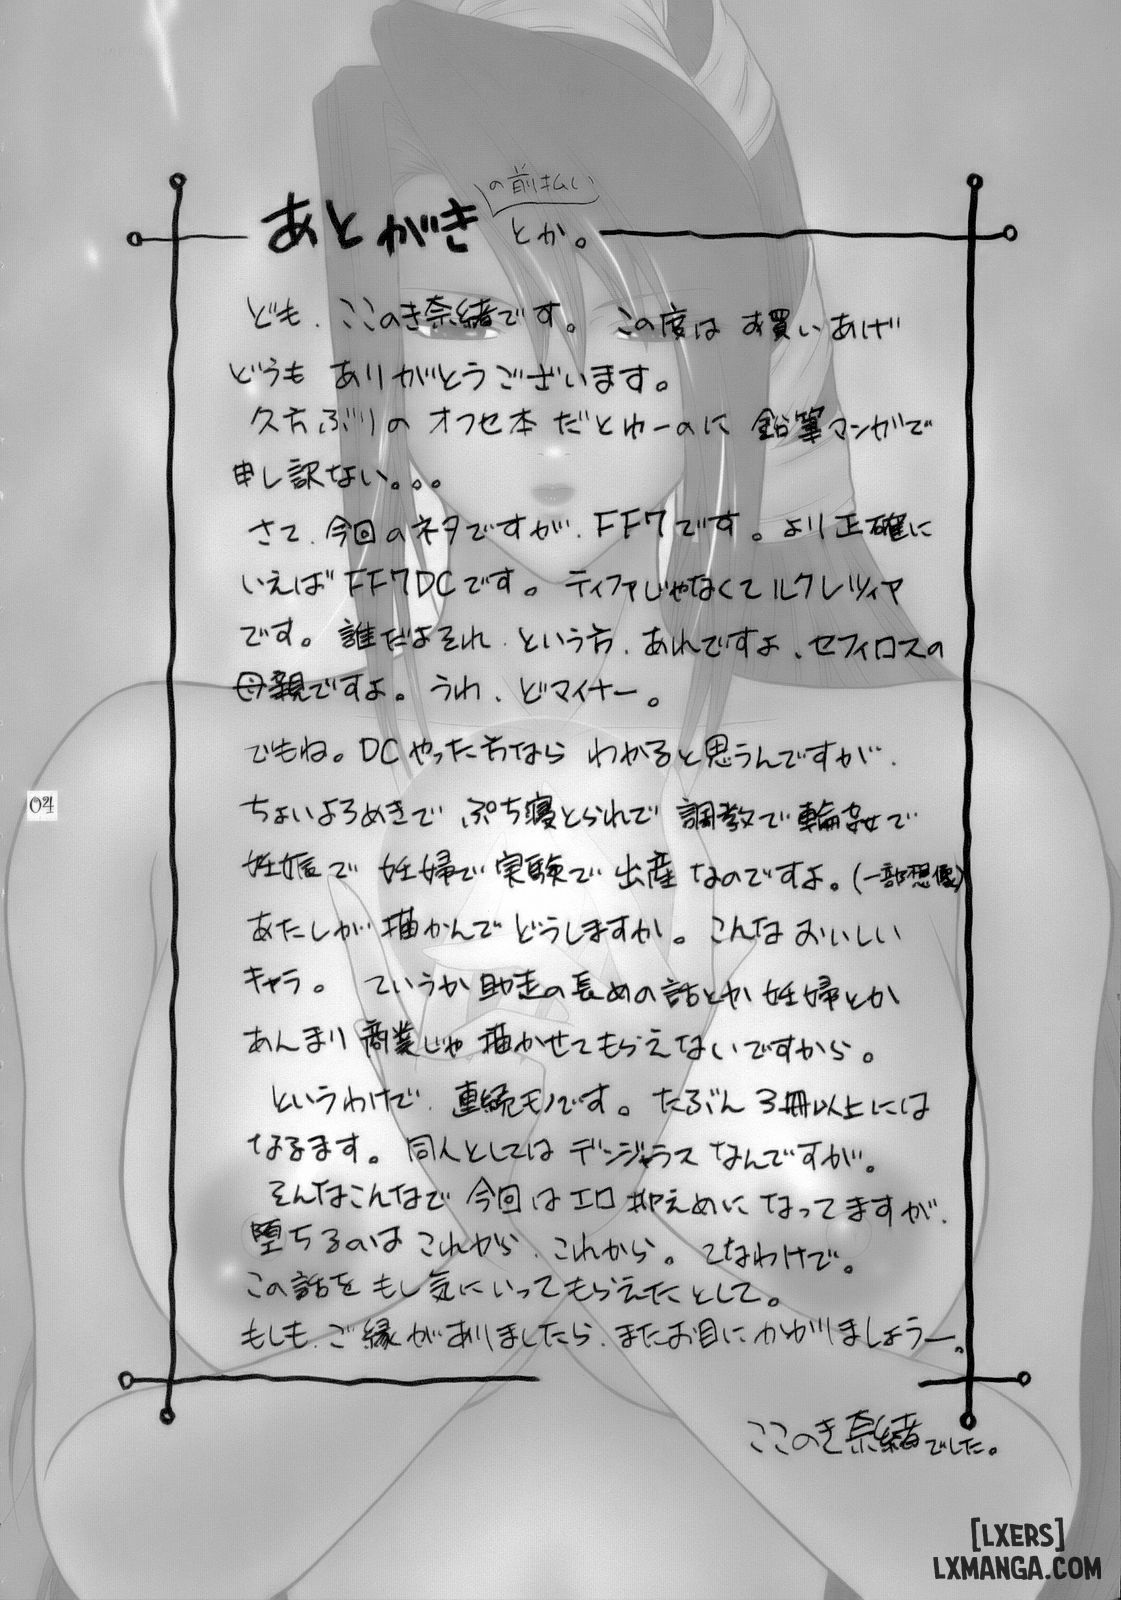 あとがき
の前払い
とか。
ども、ここのき奈緒です。 この度は お買いあげ
どうも ありがとうございます。
久方ぶりの オフセ本 だとゆーのに 鉛筆マンガで
申し訳ない。。。
さて、今回のネタですが、FF7です。より正確に
いえば FF7DCです。 ティファじゃなくて ルクレツィア
です。 誰だよそれ、という方、あれですよ、セフィロスの
母親ですよ。 うわ、どマイナー。
でもね。DCやった方なら わかると思うんですが、
ちょいよろめきで ぷち寝とられで 調教で輪姦で
妊娠で 妊婦で実験で 出産なのですよ。(一部想像)
あたしが 描かんで どうしますか。 こんな おいしい
キャラ。 ていうか 助走の長めの話とか 妊婦とか
あんまり 商業じゃ 描かせてもらえないですから。
というわけで、連続モノです。 たぶん 3冊以上には
なるます。 同人としては デンジャラス なんですが。
そんなこんなで 今回は エロ 抑えめに なってますが、
堕ちるのは これから、これから。 てなわけで。
この話を もし気にいってもらえたとして。
もしも、ご縁がありましたら、またお目にかかりましょうー。
ここのき奈緒でした。
04
[LXERS]
LXMANGA.COM